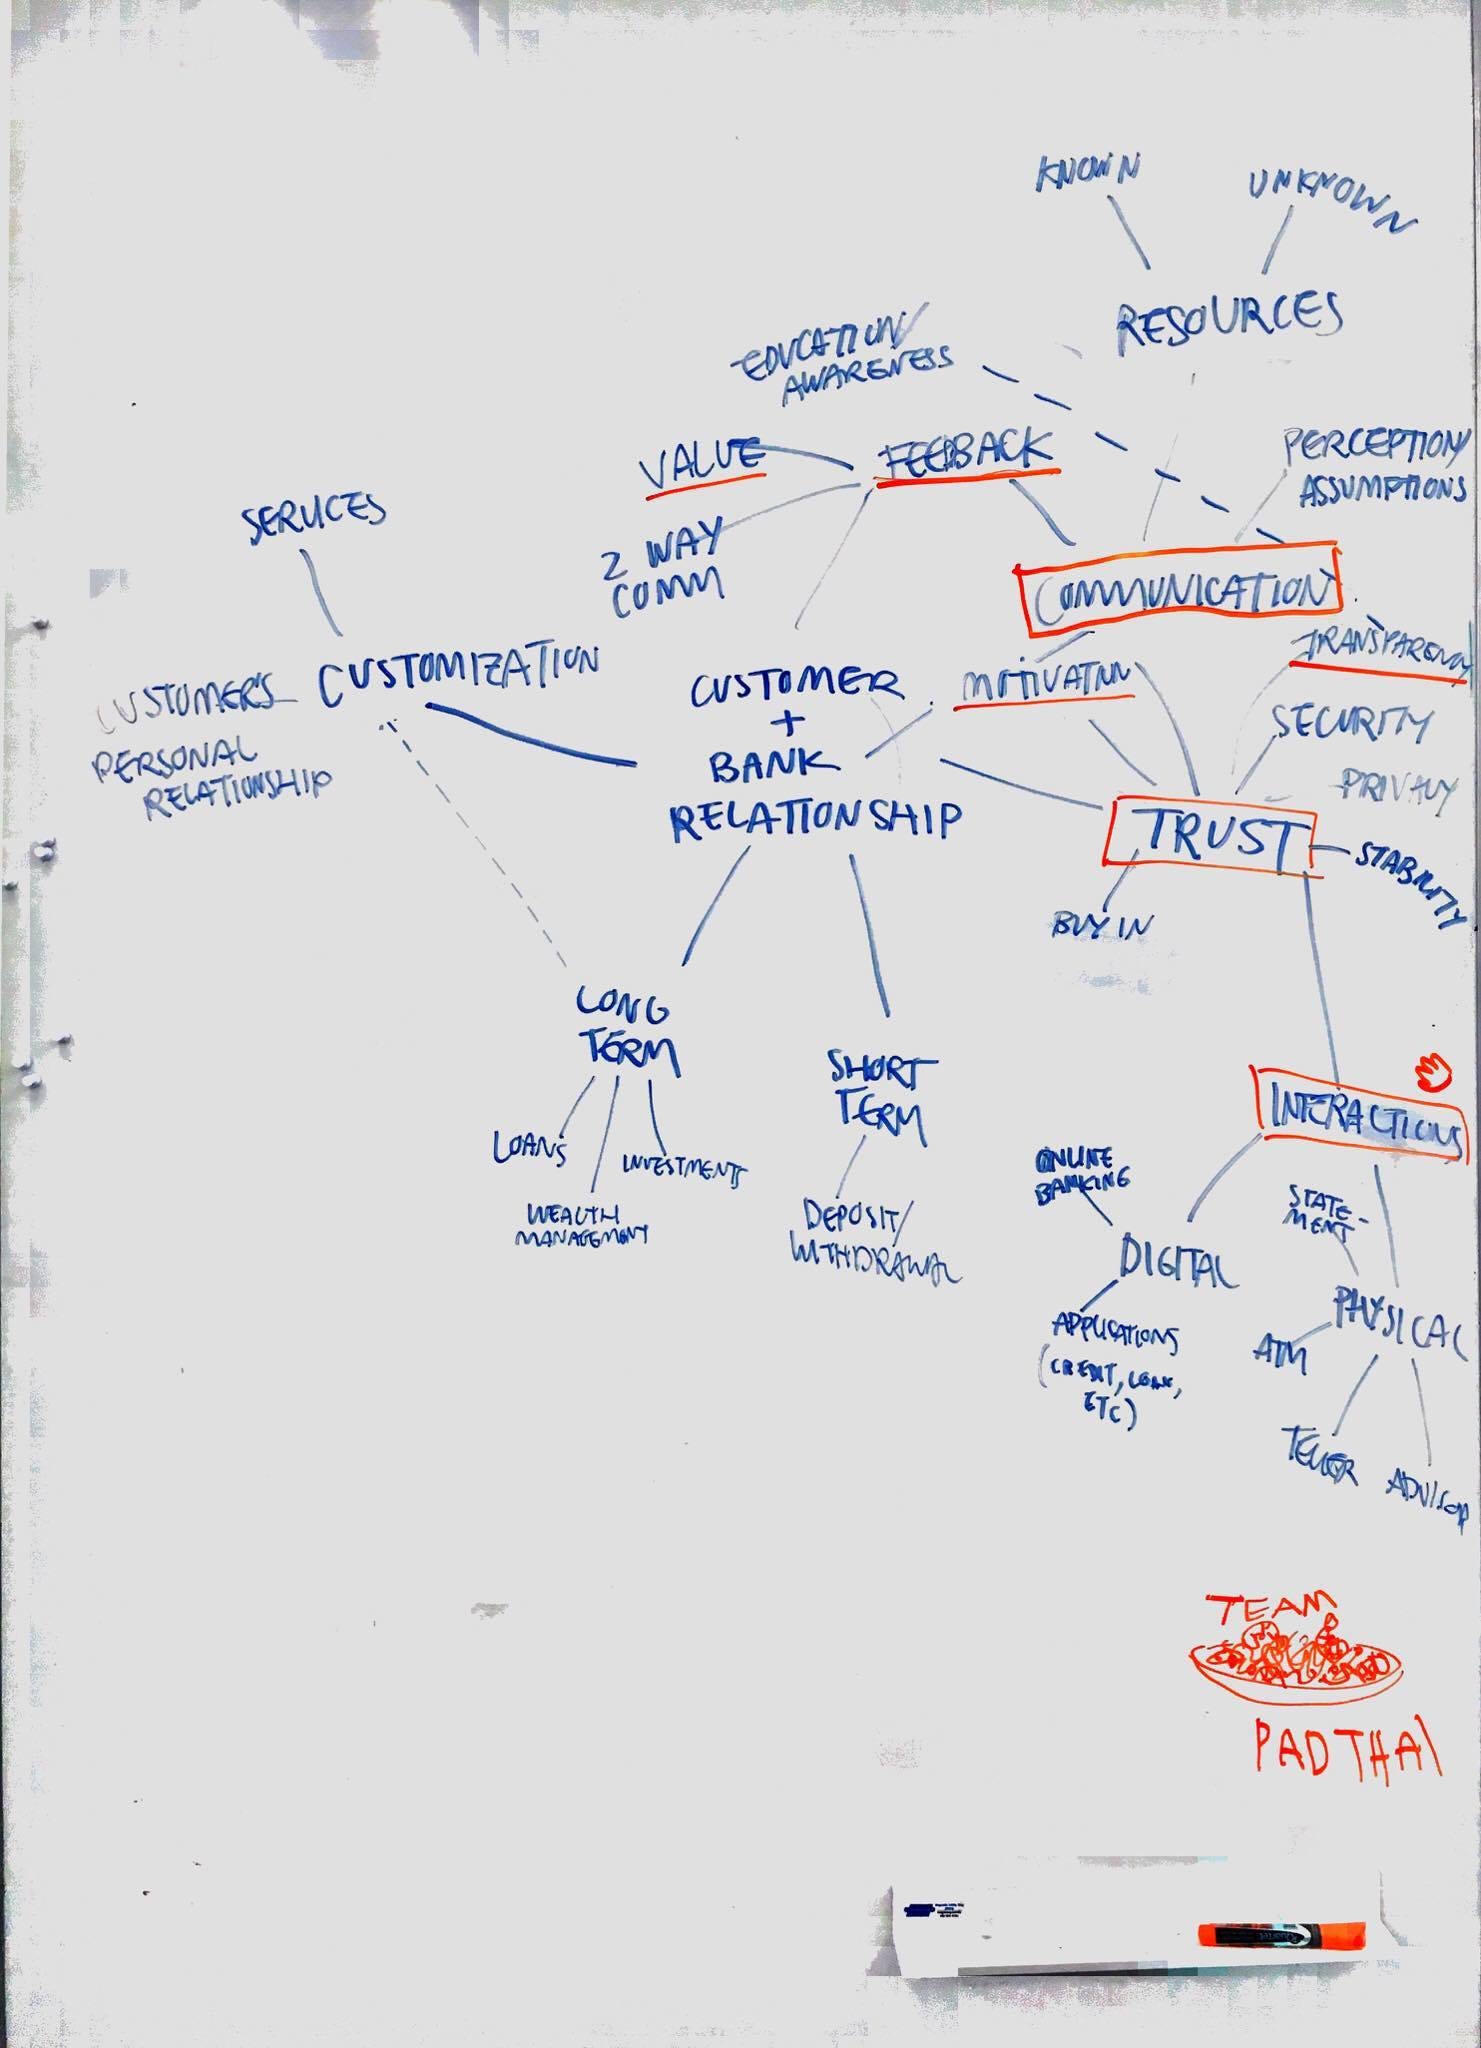 KNOWN
UNKNOWN
RESOURCES
EDUCATION/
AWARENESS
VALUE
FEEDBACK
PERCEPTION/
ASSUMPTIONS
2 WAY
COMM
COMMUNICATION
SERVICES
CUSTOMIZATION
CUSTOMER'S
PERSONAL
RELATIONSHIP
CUSTOMER
+
BANK
RELATIONSHIP
MOTIVATION
TRANSPARENCY
SECURITY
PRIVACY
TRUST
STABILITY
BUY IN
LONG
TERM
LOANS
WEALTH
MANAGEMENT
INVESTMENTS
SHORT
TERM
DEPOSIT/
WITHDRAWAL
INTERACTIONS
ONLINE
BANKING
DIGITAL
APPLICATIONS
(CREDIT, LOAN,
ETC)
STATE-
MENT
PHYSICAL
ATM
TELLER
ADVISOR
TEAM
PAD THAI
Quartet